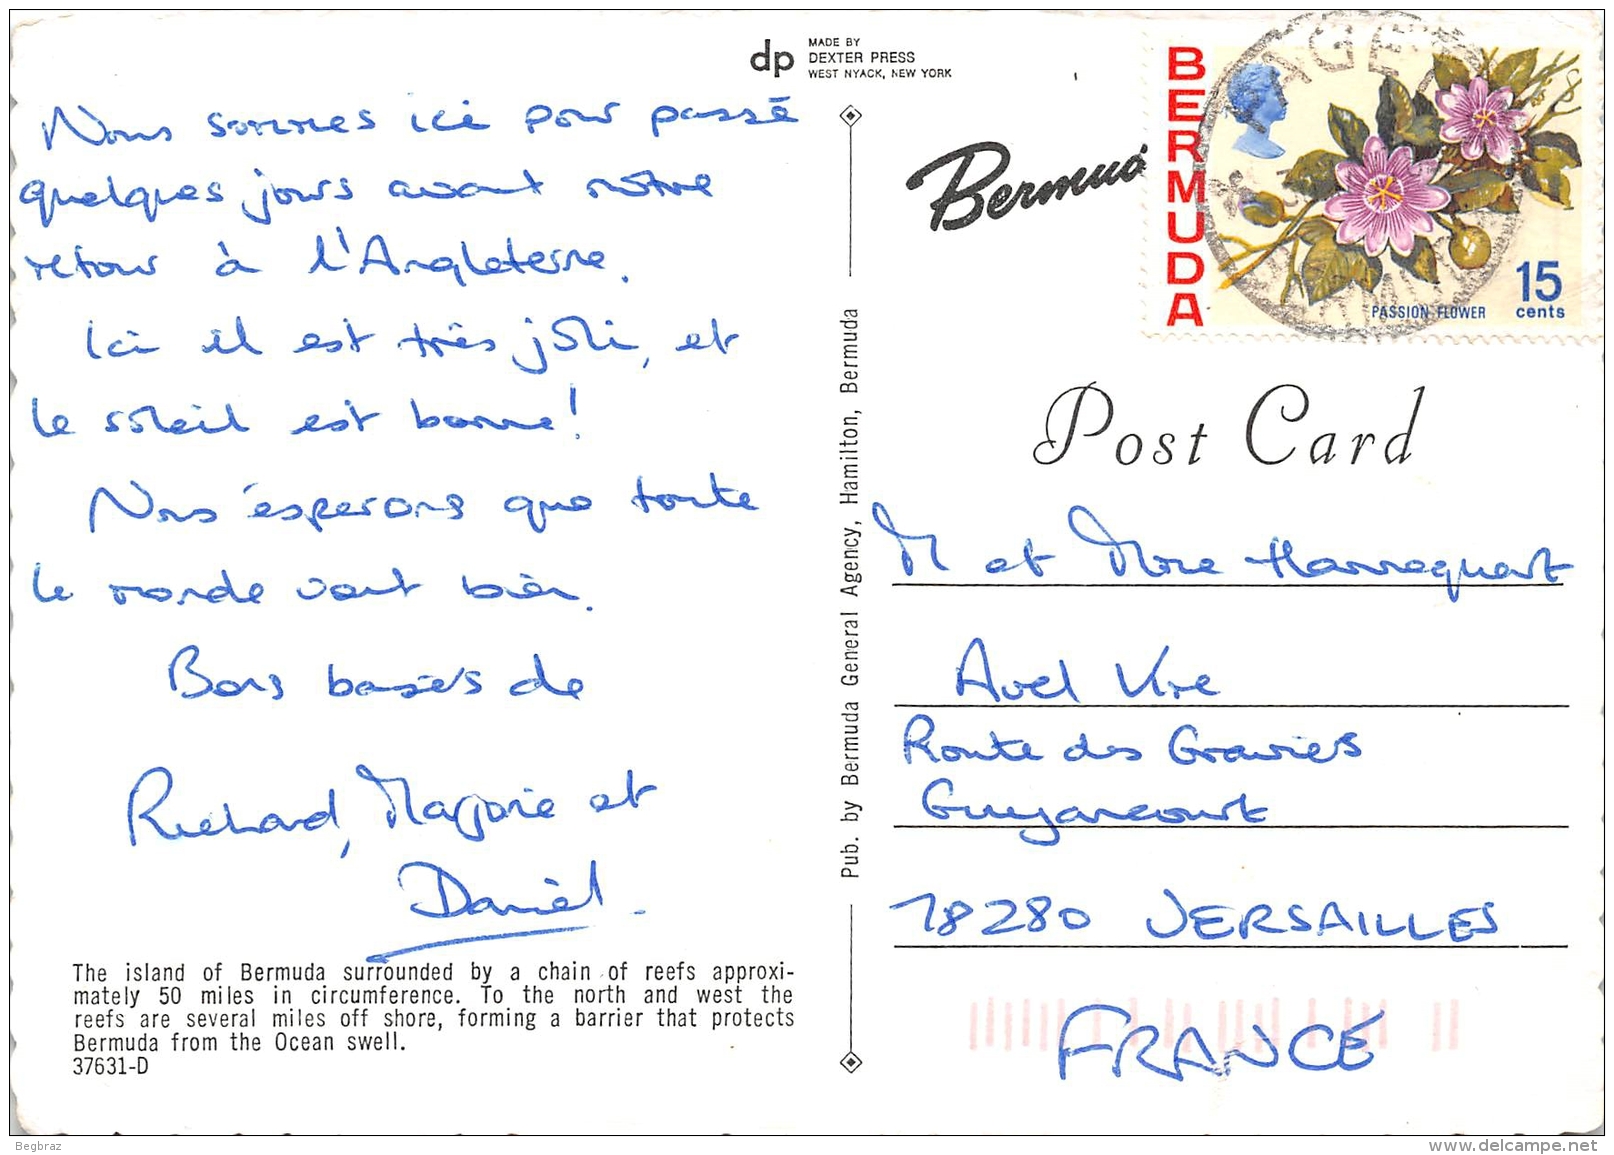 Nous sommes ici pour passé
quelques jours avant nôtre
retour à l'Angleterre.
Ici il est très joli, et
le soleil est bonne!
Nous ésperons que toute
le monde vont bien.
Bons baisers de
Richard, Marjorie et
Daniel.
The island of Bermuda surrounded by a chain of reefs approxi-
mately 50 miles in circumference. To the north and west the
reefs are several miles off shore, forming a barrier that protects
Bermuda from the Ocean swell.
37631-D
dp
MADE BY
DEXTER PRESS
WEST NYACK, NEW YORK
Pub. by Bermuda General Agency, Hamilton, Bermuda
Bermuda
BERMUDA
PASSION FLOWER
15
cents
Post Card
M et Mme Hannequart
Route des Graviers
Guyancourt
78280 VERSAILLES
FRANCE
Begbraz
www.delcampe.net